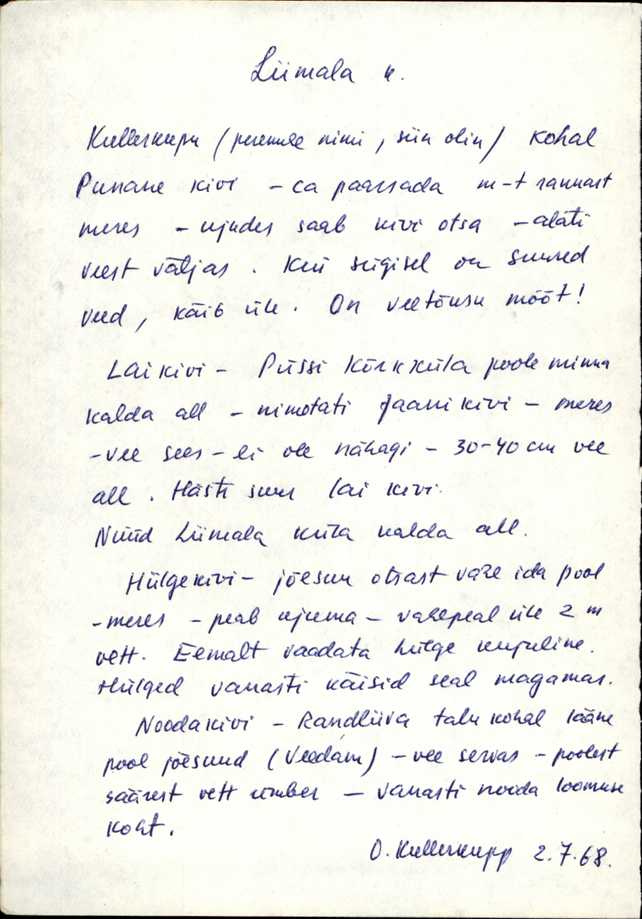 Liimala k.
Kullerkupu (peremehe nimi, siin olin) kohal
Punane kivi – ca paarsada m-t rannast
meres – ujudes saab kivi otsa – alati
veest väljas. Kui sügisel on suured
veed, käib üle. On veetõusu mõõt!
Lai kivi – Püssi Kõrkküla poole minna
kalda all – nimetati Jaani kivi – meres
– vee sees – ei ole nähagi – 30-40 cm vee
all. Hästi suur lai kivi.
Nüüd Liimala küla kalda all.
Hülgekivi – jõesuu otsast vare ida pool
– meres – peab ujuma – vahepeal üle 2 m
vett. Eemalt vaadata hülge kujuline.
Hülged vanasti käisid seal magamas.
Noodakivi – Randliiva talu kohal lääne
pool jõesuud (Veedam) – vee servas – poolest
säärest vett ümber – vanasti nooda loomuse
koht.
O. Kullerkupp 2.7.68.